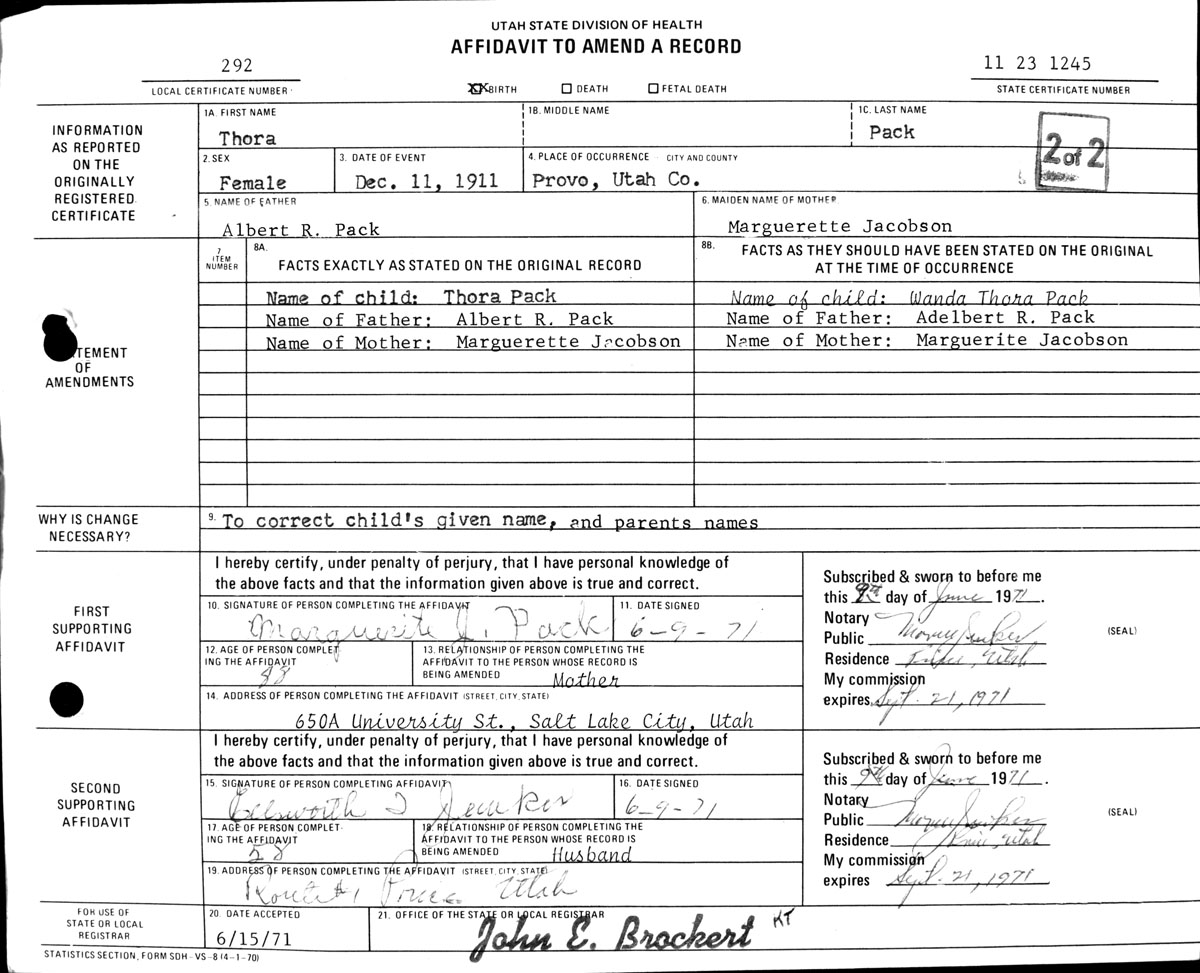 UTAH STATE DIVISION OF HEALTH
AFFIDAVIT TO AMEND A RECORD
292
LOCAL CERTIFICATE NUMBER
XX BIRTH ☐ DEATH ☐ FETAL DEATH
11 23 1245
STATE CERTIFICATE NUMBER
INFORMATION
AS REPORTED
ON THE
ORIGINALLY
REGISTERED
CERTIFICATE
1A. FIRST NAME
Thora
1B. MIDDLE NAME
1C. LAST NAME
Pack
2 of 2
2. SEX
Female
3. DATE OF EVENT
Dec. 11, 1911
4. PLACE OF OCCURRENCE — CITY AND COUNTY
Provo, Utah Co.
5. NAME OF FATHER
Albert R. Pack
6. MAIDEN NAME OF MOTHER
Marguerette Jacobson
TEMENT
OF
AMENDMENTS
7
ITEM
NUMBER
8A.
FACTS EXACTLY AS STATED ON THE ORIGINAL RECORD
8B. FACTS AS THEY SHOULD HAVE BEEN STATED ON THE ORIGINAL
AT THE TIME OF OCCURRENCE
Name of child: Thora Pack
Name of child: Wanda Thora Pack
Name of Father: Albert R. Pack
Name of Father: Adelbert R. Pack
Name of Mother: Marguerette Jacobson
Name of Mother: Marguerite Jacobson
WHY IS CHANGE
NECESSARY?
9. To correct child's given name, and parents names
FIRST
SUPPORTING
AFFIDAVIT
I hereby certify, under penalty of perjury, that I have personal knowledge of
the above facts and that the information given above is true and correct.
10. SIGNATURE OF PERSON COMPLETING THE AFFIDAVIT
Marguerite J. Pack
11. DATE SIGNED
6-9-71
12. AGE OF PERSON COMPLET
ING THE AFFIDAVIT
88
13. RELATIONSHIP OF PERSON COMPLETING THE
AFFIDAVIT TO THE PERSON WHOSE RECORD IS
BEING AMENDED Mother
14. ADDRESS OF PERSON COMPLETING THE AFFIDAVIT (STREET, CITY, STATE)
650A University St., Salt Lake City, Utah
Subscribed & sworn to before me
this 9th day of June 1971.
Notary
Public
Residence Utah
My commission
expires Sept. 21, 1971
(SEAL)
SECOND
SUPPORTING
AFFIDAVIT
I hereby certify, under penalty of perjury, that I have personal knowledge of
the above facts and that the information given above is true and correct.
15. SIGNATURE OF PERSON COMPLETING AFFIDAVIT
Ellsworth
16. DATE SIGNED
6-9-71
17. AGE OF PERSON COMPLET-
ING THE AFFIDAVIT
58
18. RELATIONSHIP OF PERSON COMPLETING THE
AFFIDAVIT TO THE PERSON WHOSE RECORD IS
BEING AMENDED Husband
19. ADDRESS OF PERSON COMPLETING THE AFFIDAVIT (STREET, CITY, STATE)
Route #1 Price Utah
Subscribed & sworn to before me
this 9th day of June 1971.
Notary
Public
Residence Price, Utah
My commission
expires Sept. 21, 1971
(SEAL)
FOR USE OF
STATE OR LOCAL
REGISTRAR
20. DATE ACCEPTED
6/15/71
21. OFFICE OF THE STATE OR LOCAL REGISTRAR
John E. Brockert KT
STATISTICS SECTION, FORM SDH-VS-8 (4-1-70)